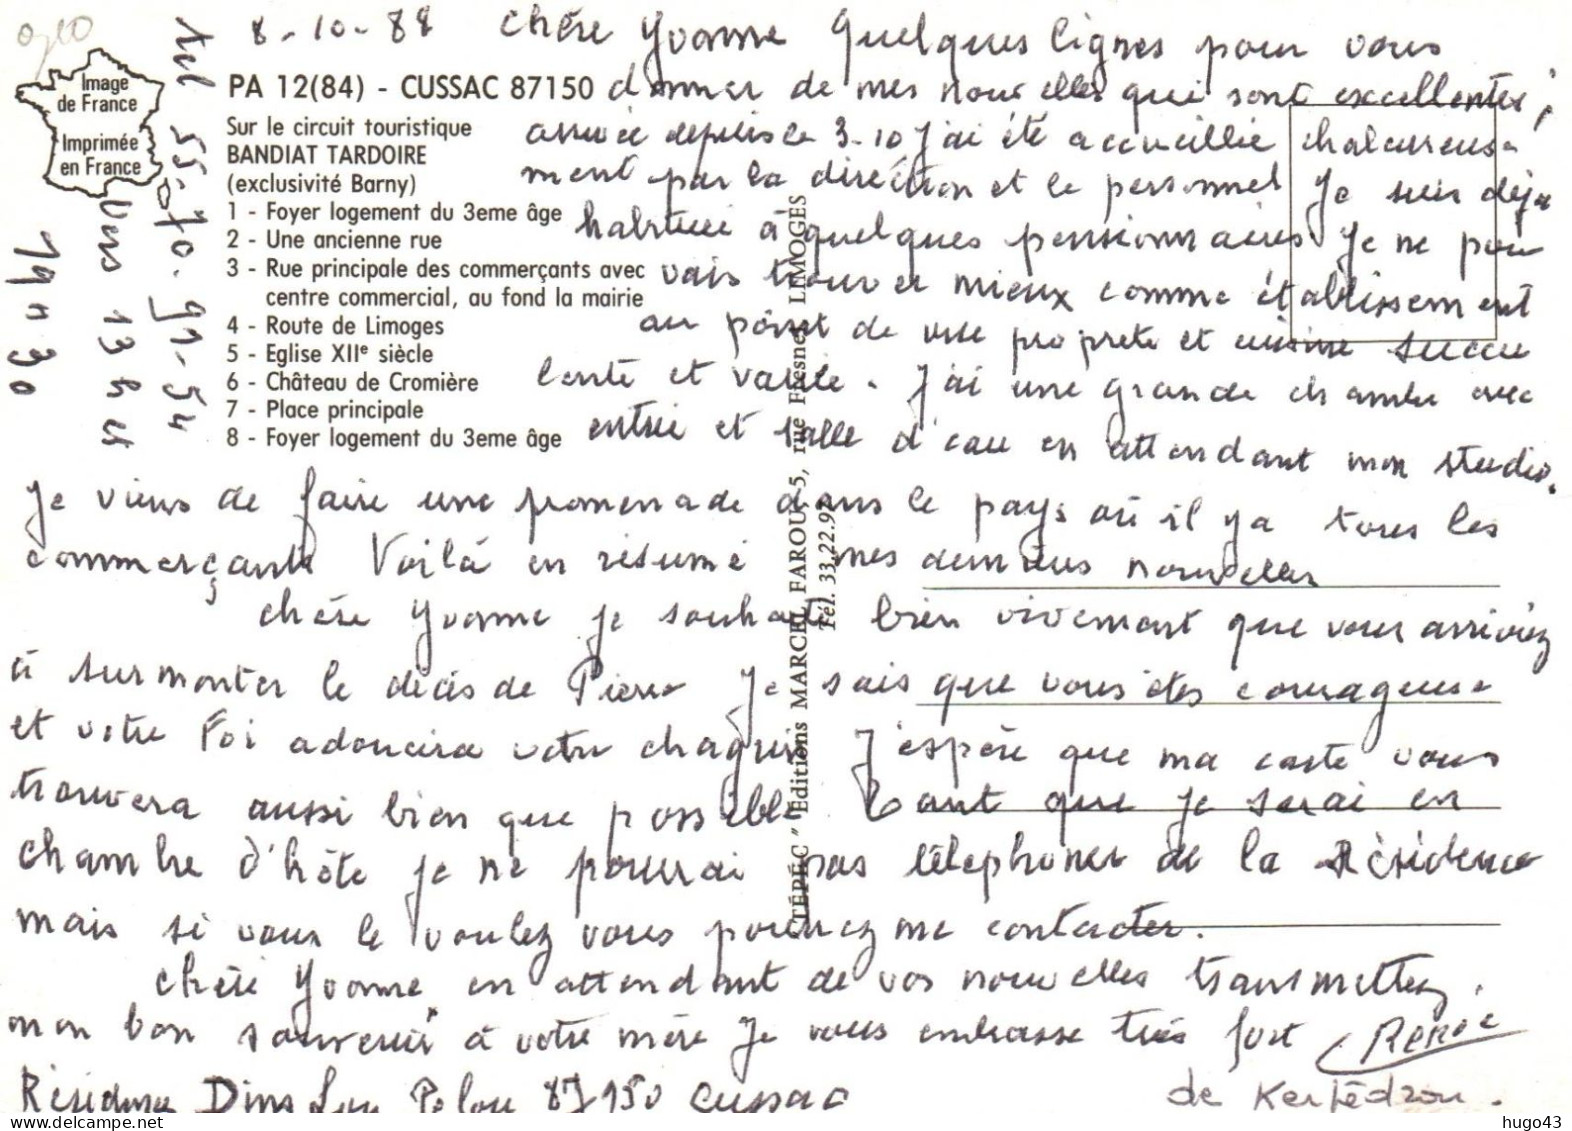 8-10-88 Chère Yvonne Quelques lignes pour vous
donner de mes nouvelles qui sont excellentes ;
arrivée depuis le 3-10 j'ai été accueillie chaleureuse-
ment par la direction et le personnel Je suis déjà
habituée à quelques pensionnaires. Je ne pou
vais trouver mieux comme établissement
au point de vue propreté et cuisine succu
lente et variée. J'ai une grande chambre avec
entrée et salle d'eau en attendant mon studio.
Je viens de faire une promenade dans le pays où il y a tous les
commerçants Voilà en résumé mes dernières nouvelles
Chère Yvonne je souhaite bien vivement que vous arriviez
à surmonter le décès de Pierre Je sais que vous êtes courageuse
et votre Foi adoucira votre chagrin J'espère que ma carte vous
trouvera aussi bien que possible Tant que je serai en
chambre d'hôte je ne pourrai pas téléphoner de la Résidence
mais si vous le voulez vous pouvez me contacter.
Chère Yvonne en attendant de vos nouvelles transmettez
mon bon souvenir à votre mère Je vous embrasse très fort
de
Résidence 87150 Cussac
Tel 55-70-91-54
Vers 13 h et
19 h 30
Image
de France
Imprimée
en France
PA 12(84) - CUSSAC 87150
Sur le circuit touristique
BANDIAT TARDOIRE
(exclusivité Barny)
1 - Foyer logement du 3eme âge
2 - Une ancienne rue
3 - Rue principale des commerçants avec
centre commercial, au fond la mairie
4 - Route de Limoges
5 - Eglise XIIe siècle
6 - Château de Cromière
7 - Place principale
8 - Foyer logement du 3eme âge
TÉPÉC " Editions MARCEL FAROU, 5, rue Fresnel LIMOGES
Tél. 33.22.97
hugo43